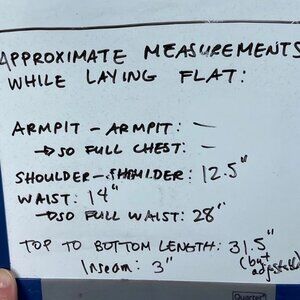 APPROXIMATE MEASUREMENTS
WHILE LAYING FLAT:
ARMPIT - ARMPIT: —
→ SO FULL CHEST: —
SHOULDER - SHOULDER: 12.5"
WAIST: 14"
→ SO FULL WAIST: 28"
TOP TO BOTTOM LENGTH: 31.5"
Inseam: 3" (but adjustable)
Quartet